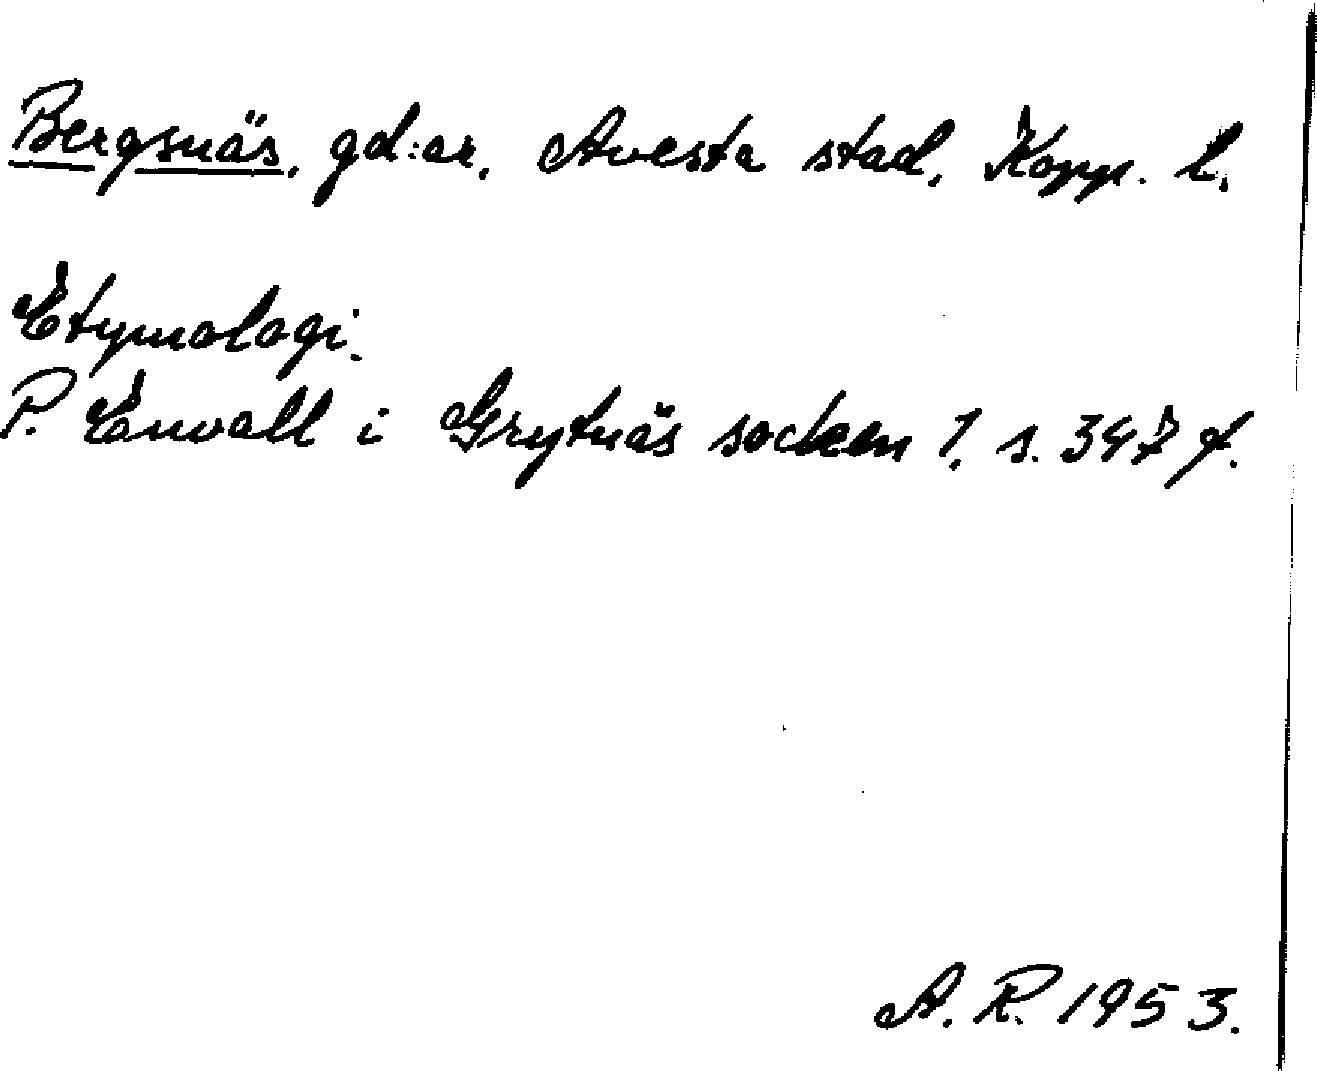 Bergsnäs, gd:ar, Avesta stad, Kopp. l.
Etymologi.
P. Envall i Grytnäs socken 1, s. 347 f.
A. R. 1953.